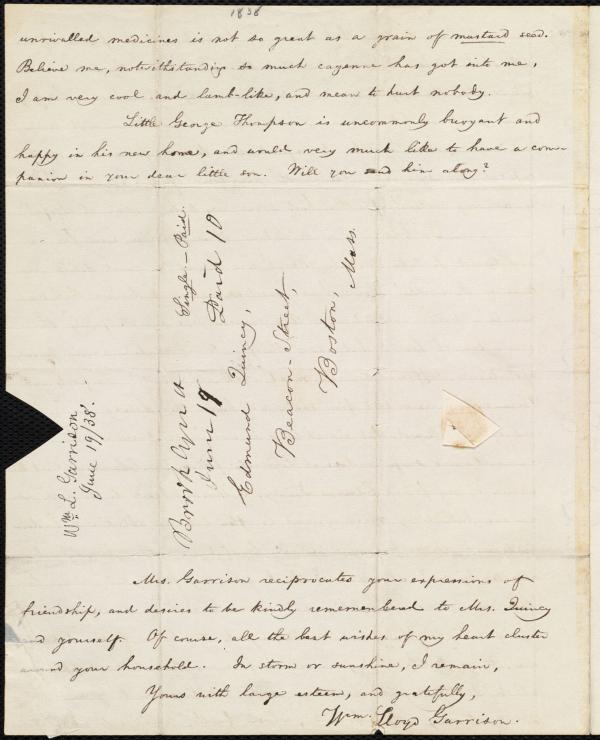 1838
unrivalled medicines is not so great as a grain of mustard seed.
Believe me, notwithstanding so much cayenne has got into me,
I am very cool and lamb-like, and mean to hurt nobody.
Little George Thompson is uncommonly buoyant and
happy in his new home, and would very much like to have a com-
panion in your dear little son. Will you send him along?
Single. – Paid.
Paid 10
Brooklyn Ct
June 19
Edmund Quincy,
Beacon-Street,
Boston, Mass.
Wm. L. Garrison
June 19/38.
Mrs. Garrison reciprocates your expressions of
friendship, and desires to be kindly remembered to Mrs. Quincy
and yourself. Of course, all the best wishes of my heart cluster
around your household. In storm or sunshine, I remain,
Yours with large esteem, and gratefully,
Wm. Lloyd Garrison.